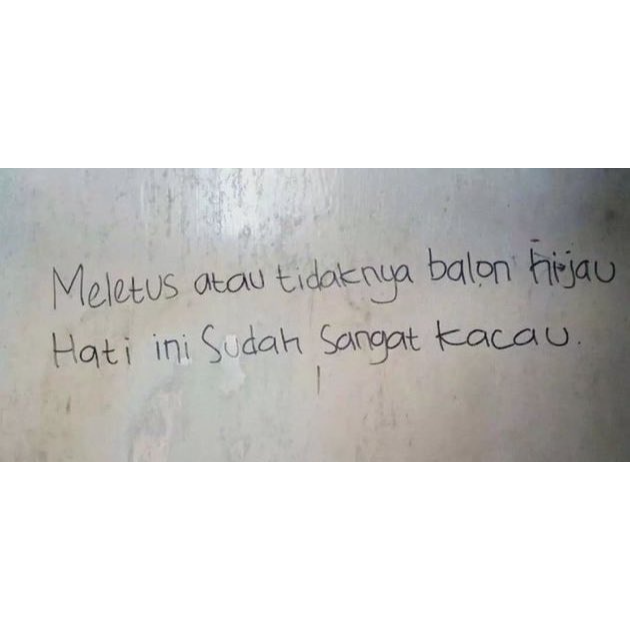 Meletus atau tidaknya balon hijau
Hati ini Sudah Sangat kacau.